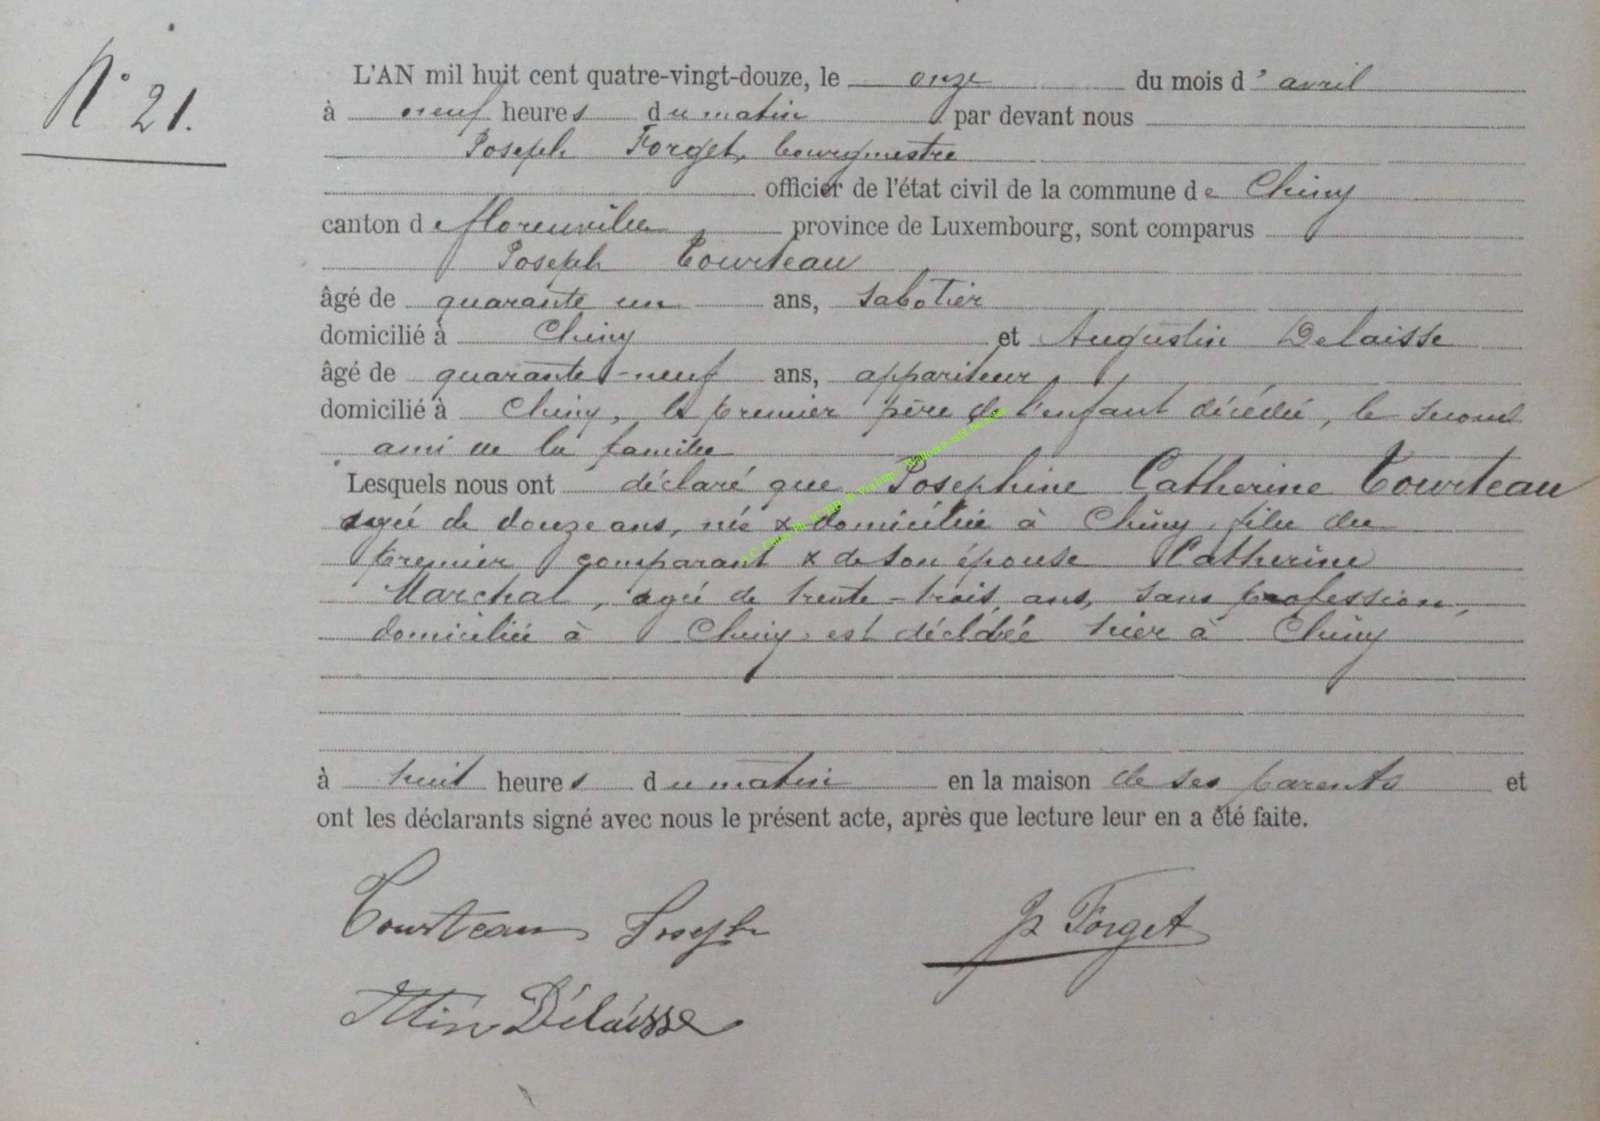 N° 21.
L'AN mil huit cent quatre-vingt-douze, le onze du mois d'avril
à neuf heures du matin par devant nous
Joseph Forget, bourgmestre
officier de l'état civil de la commune de Chiny
canton de Florenville province de Luxembourg, sont comparus
Joseph Tourteau
âgé de quarante un ans, sabotier
domicilié à Chiny et Augustin Delaisse
âgé de quarante-neuf ans, appariteur
domicilié à Chiny, le premier père de l'enfant décédée, le second
ami de la famille
Lesquels nous ont déclaré que Josephine Catherine Tourteau
agée de douze ans, née & domiciliée à Chiny, fille du
premier comparant & de son épouse Catherine
Marchal, agée de trente-trois ans, sans profession,
domiciliée à Chiny, est décédée hier à Chiny
à huit heures du matin en la maison de ses parents et
ont les déclarants signé avec nous le présent acte, après que lecture leur en a été faite.
Tourteau Joseph
Jh Forget
Délaisse